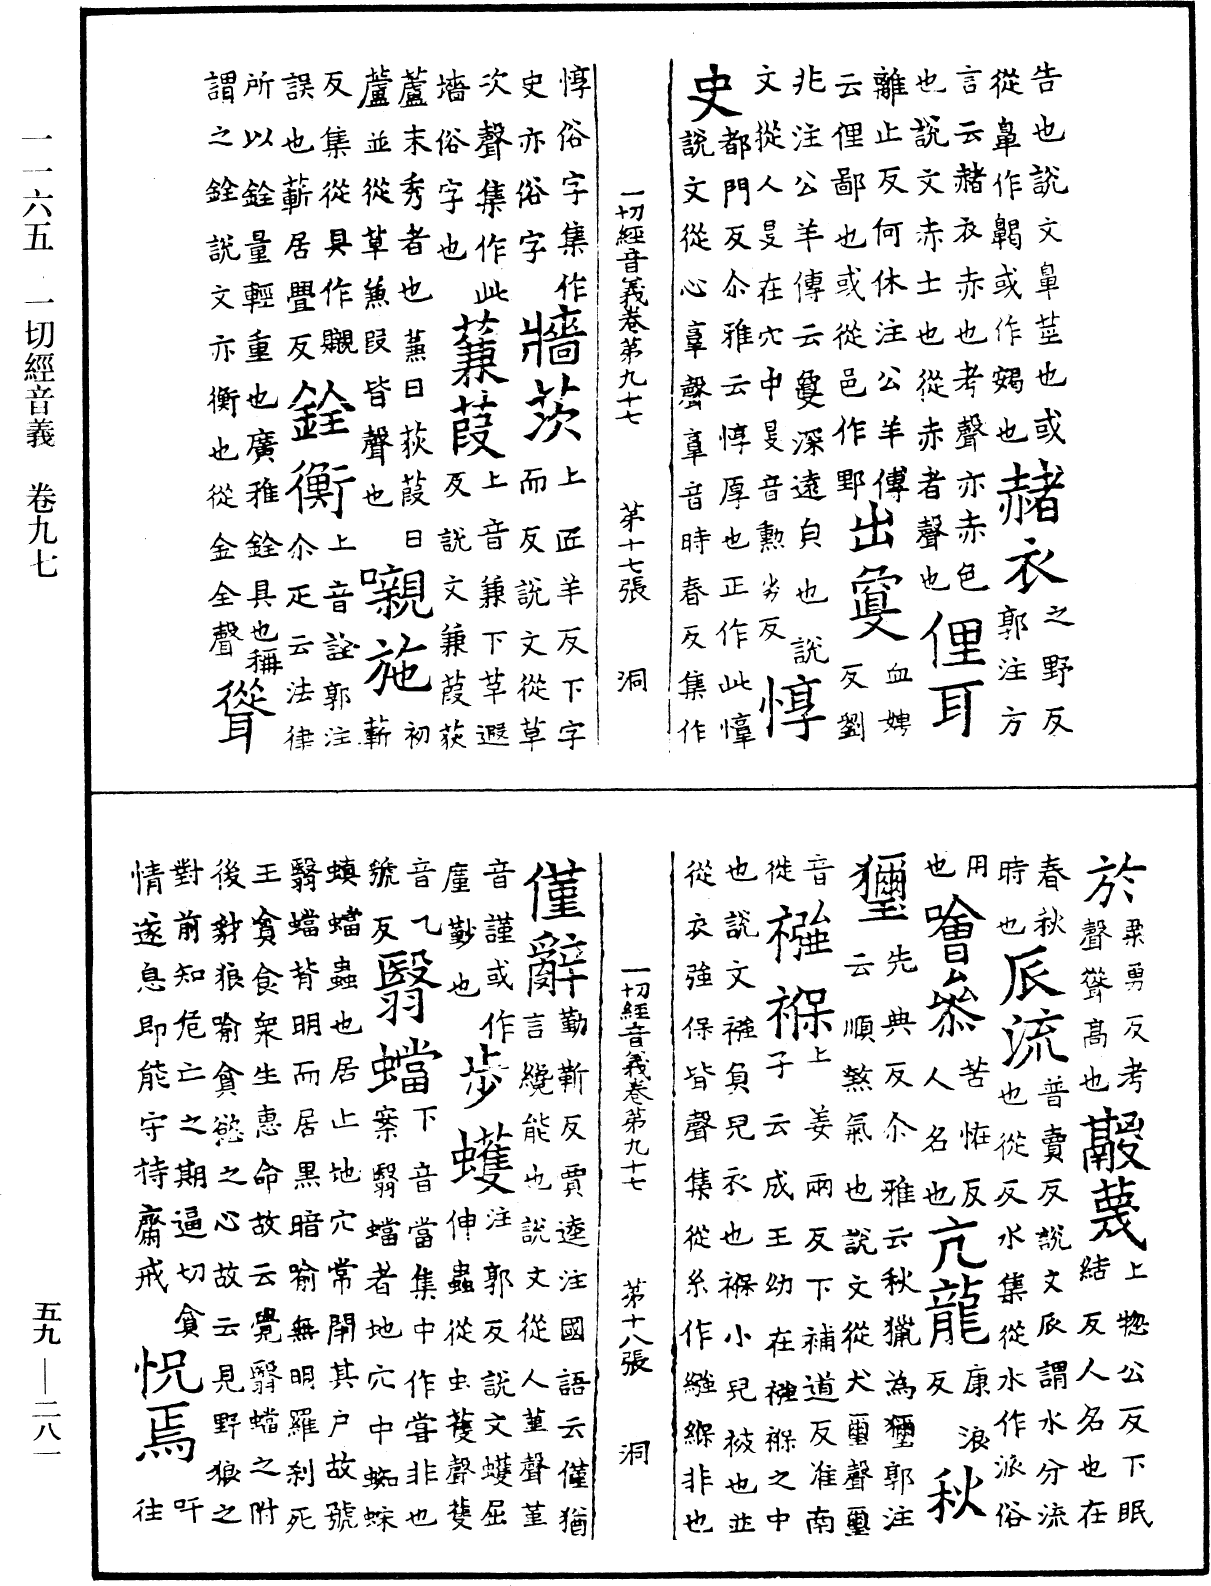 告也說文鼻莖也或
從鼻作齃或作䫏也
赭衣
之野反
郭注方
言云赭衣赤也考聲亦赤色
也說文赤土也從赤者聲也
俚耳
離止反何休注公羊傳
云俚鄙也或從邑作野
出敻
血娉
反劉
兆注公羊傳云敻深遠皃也說
文從人𥄎在穴中𥄎音勳劣反
惇
史
都門反尒雅云惇厚也正作此惇
說文從心𦎫聲𦎫音時春反集作
一切經音義卷第九十七 第十七張 洞
惇俗字集作
史亦俗字
牆茨
上匠羊反下字
而反說文從草
次聲集作此
墻俗字也
蒹葭
上音兼下革遐
反說文蒹葭荻
蘆末秀者也蒹曰荻葭曰
蘆並從草兼叚皆聲也
嚫施
初
靳
反集從具作䞋
誤也靳居舋反
銓衡
上音詮郭注
尒疋云法律
所以銓量輕重也廣雅銓具也稱
謂之銓說文亦衡也從金全聲
聳
於
粟勇反考
聲聳高也
鬷蔑
上惣公反下眠
結反人名也在
春秋
時也
𠂢流
普賣反說文𠂢謂水分流
也從反水集從水作派俗
用
也
噲參
苦恠反
人名也
亢龍
康浪
反
秋
獮
先典反尒雅云秋獵為獮郭注
云順煞氣也說文從犬璽聲璽
音
徙
襁褓
上姜兩反下補道反淮南
子云成王幼在襁褓之中
也說文襁負兒衣也褓小兒被也並
從衣強保皆聲集從糸作繈緥非也
一切經音義卷第九十七 第十八張 洞
僅辭
勤靳反賈逵注國語云僅猶
言纔能也說文從人堇聲堇
音謹或作
廑勤也
步蠖
注郭反說文蠖屈
伸蟲從虫蒦聲蒦
音乙
號反
翳蟷
下音當集中作甞非也
案翳蟷者地穴中蜘蛛
蟷蟲也居止地穴常閉其户故號
翳蟷背明而居黑暗喻無明羅剎死
王貪食衆生惠命故云覺翳蟷之附
後豺狼喻貪慾之心故云見野狼之
對前知危亡之期逼切貪
情遂息即能守持齋戒
怳焉
吁
往
一一六五 一切經音義 卷九七
五九—二八一